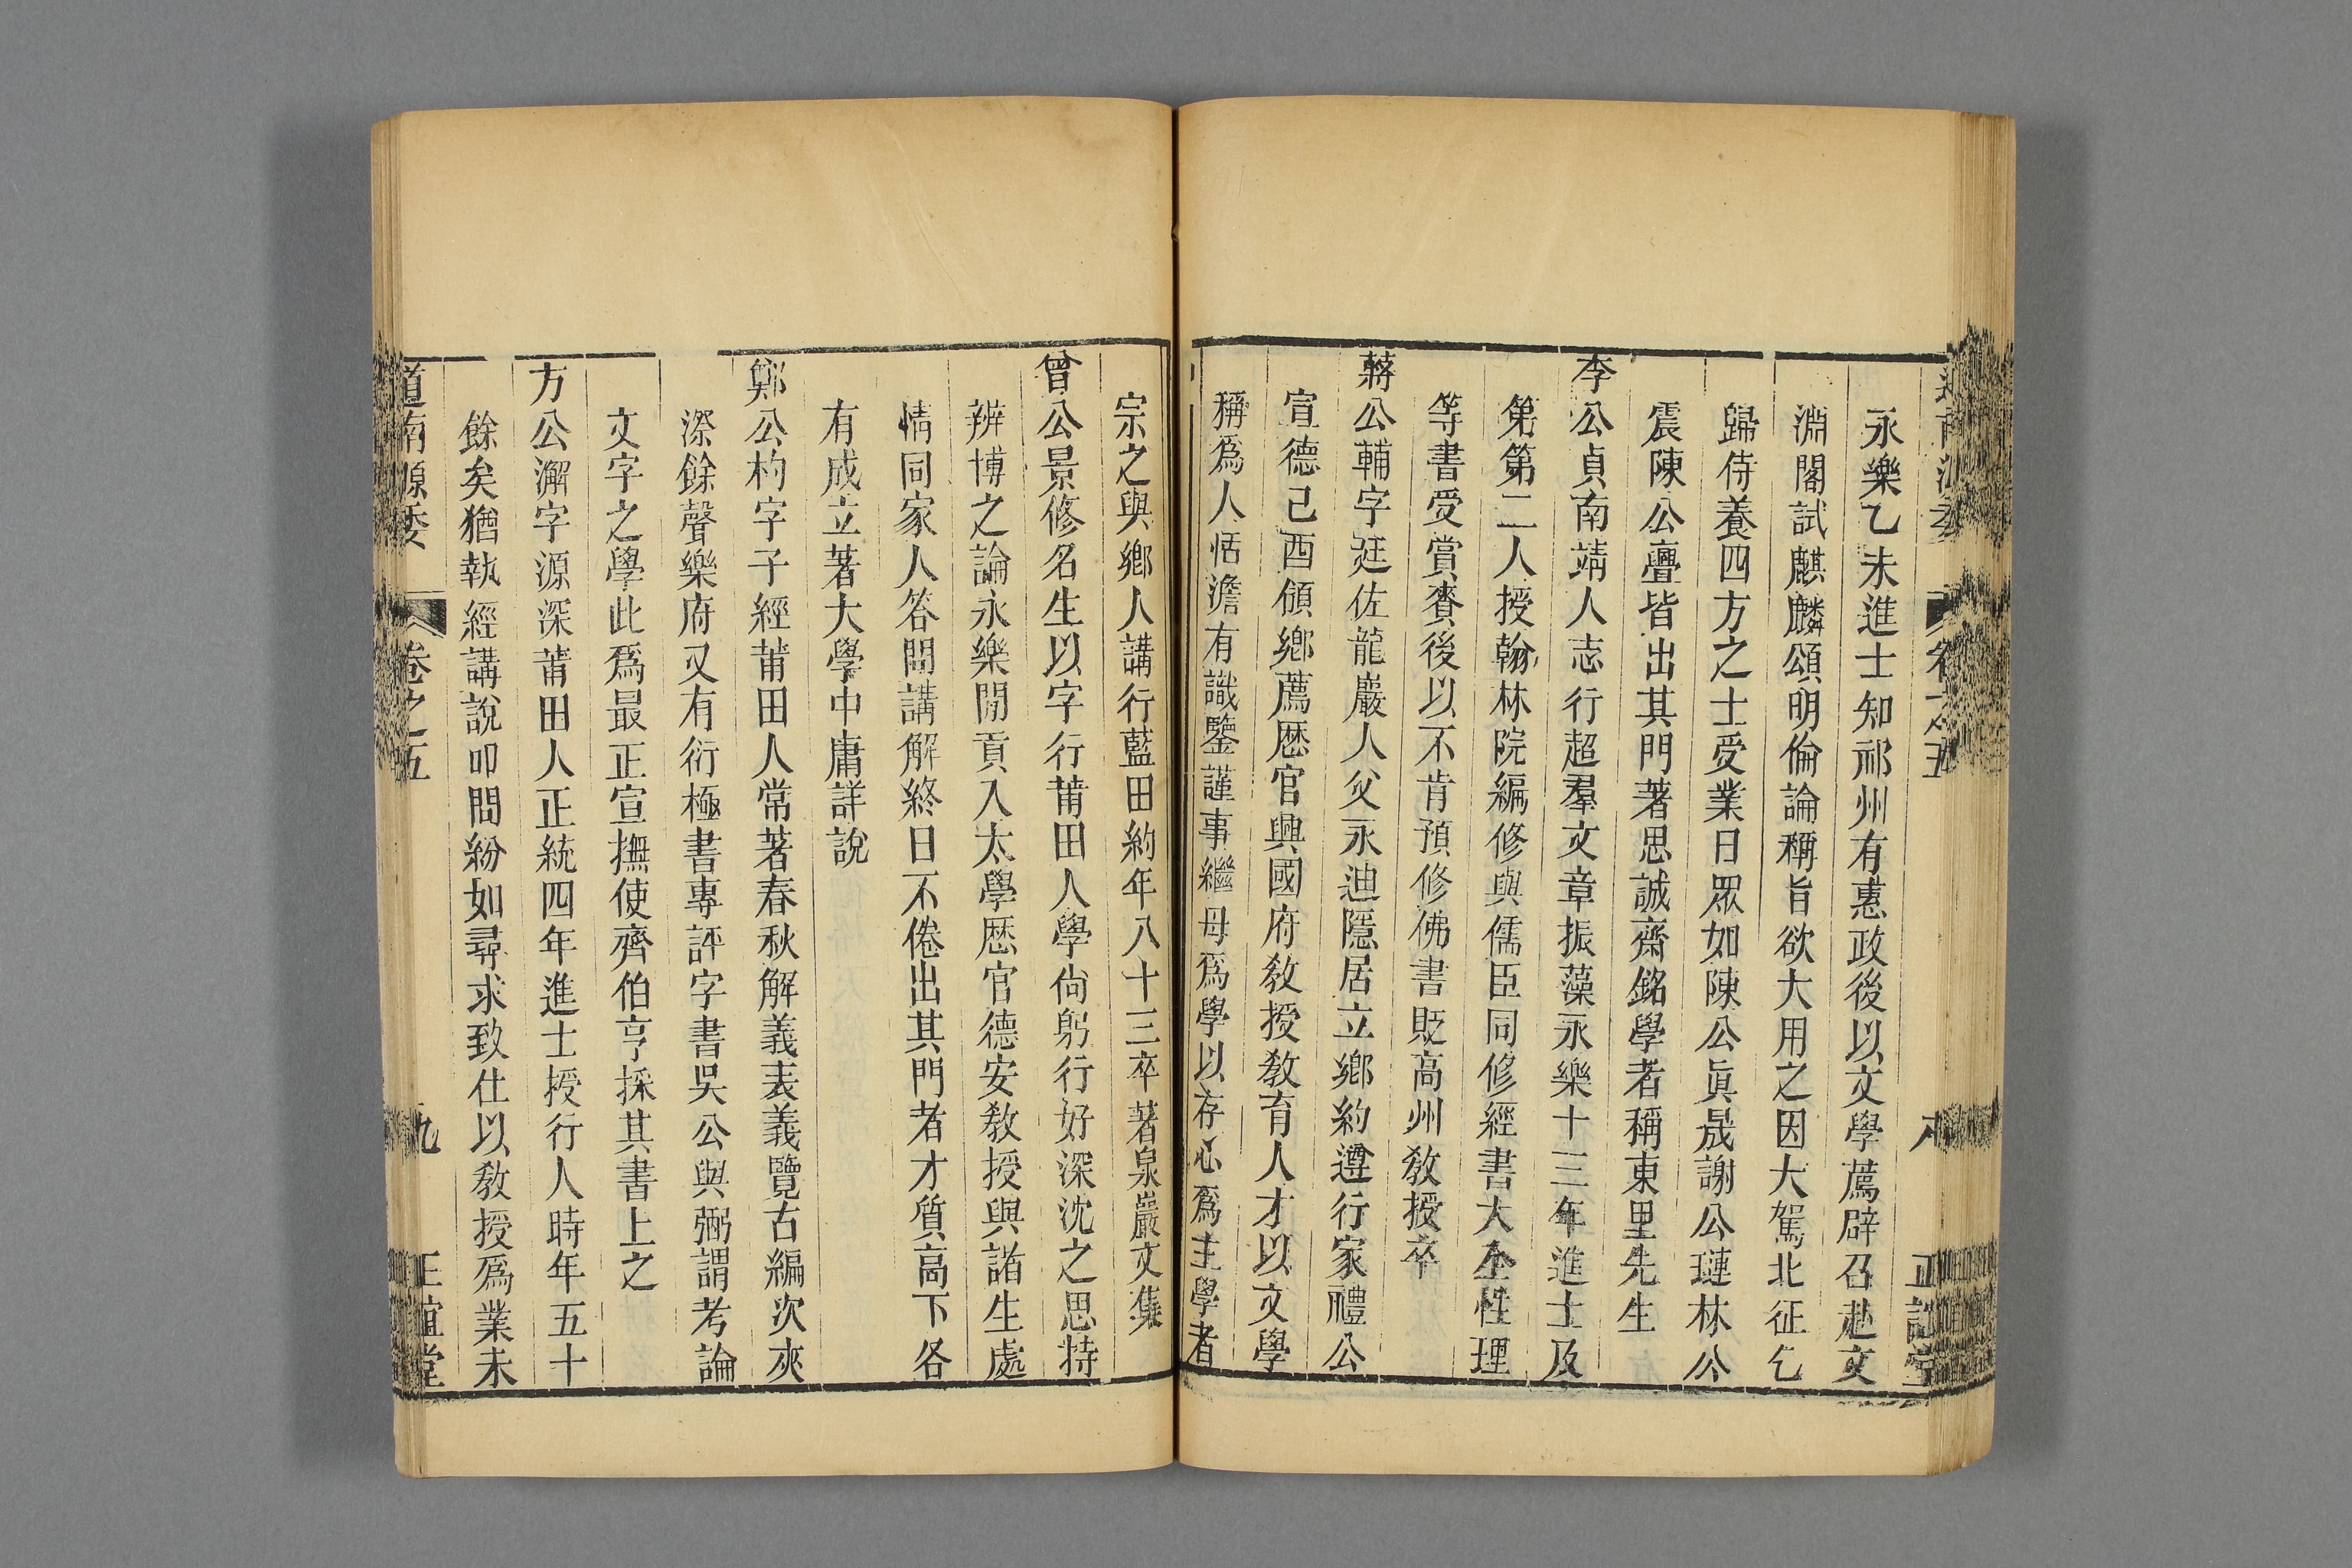 永樂乙未進士知祁州有惠政後以文學薦辟召赴文
淵閣試麒麟頌明倫論稱旨欲大用之因大駕北征乞
歸侍養四方之士受業日眾如陳公眞晟謝公璉林公
震陳公亹皆出其門著思誠齋銘學者稱東里先生
李公貞南靖人志行超羣文章振藻永樂十三年進士及
第第二人授翰林院編修與儒臣同修經書大全性理
等書受賞賚後以不肯預修佛書貶高州敎授卒
蔣公輔字廷佐龍巖人父永迪隱居立鄉約遵行家禮公
宣德己酉領鄉薦歷官興國府敎授敎育人才以文學
稱爲人恬澹有識鑒謹事繼母爲學以存心爲主學者
宗之與鄉人講行藍田約年八十三卒著泉巖文集
曾公景修名生以字行莆田人學尙躬行好深沈之思持
辨博之論永樂閒貢入太學歷官德安敎授與諸生處
情同家人答問講解終日不倦出其門者才質高下各
有成立著大學中庸詳說
鄭公杓字子經莆田人常著春秋解義表義覽古編次夾
漈餘聲樂府又有衍極書專評字書吳公與弼謂考論
文字之學此爲最正宣撫使齊伯亨採其書上之
方公澥字源深莆田人正統四年進士授行人時年五十
餘矣猶執經講說叩問紛如尋求致仕以敎授爲業未
道南源委 卷之五 九 正誼堂